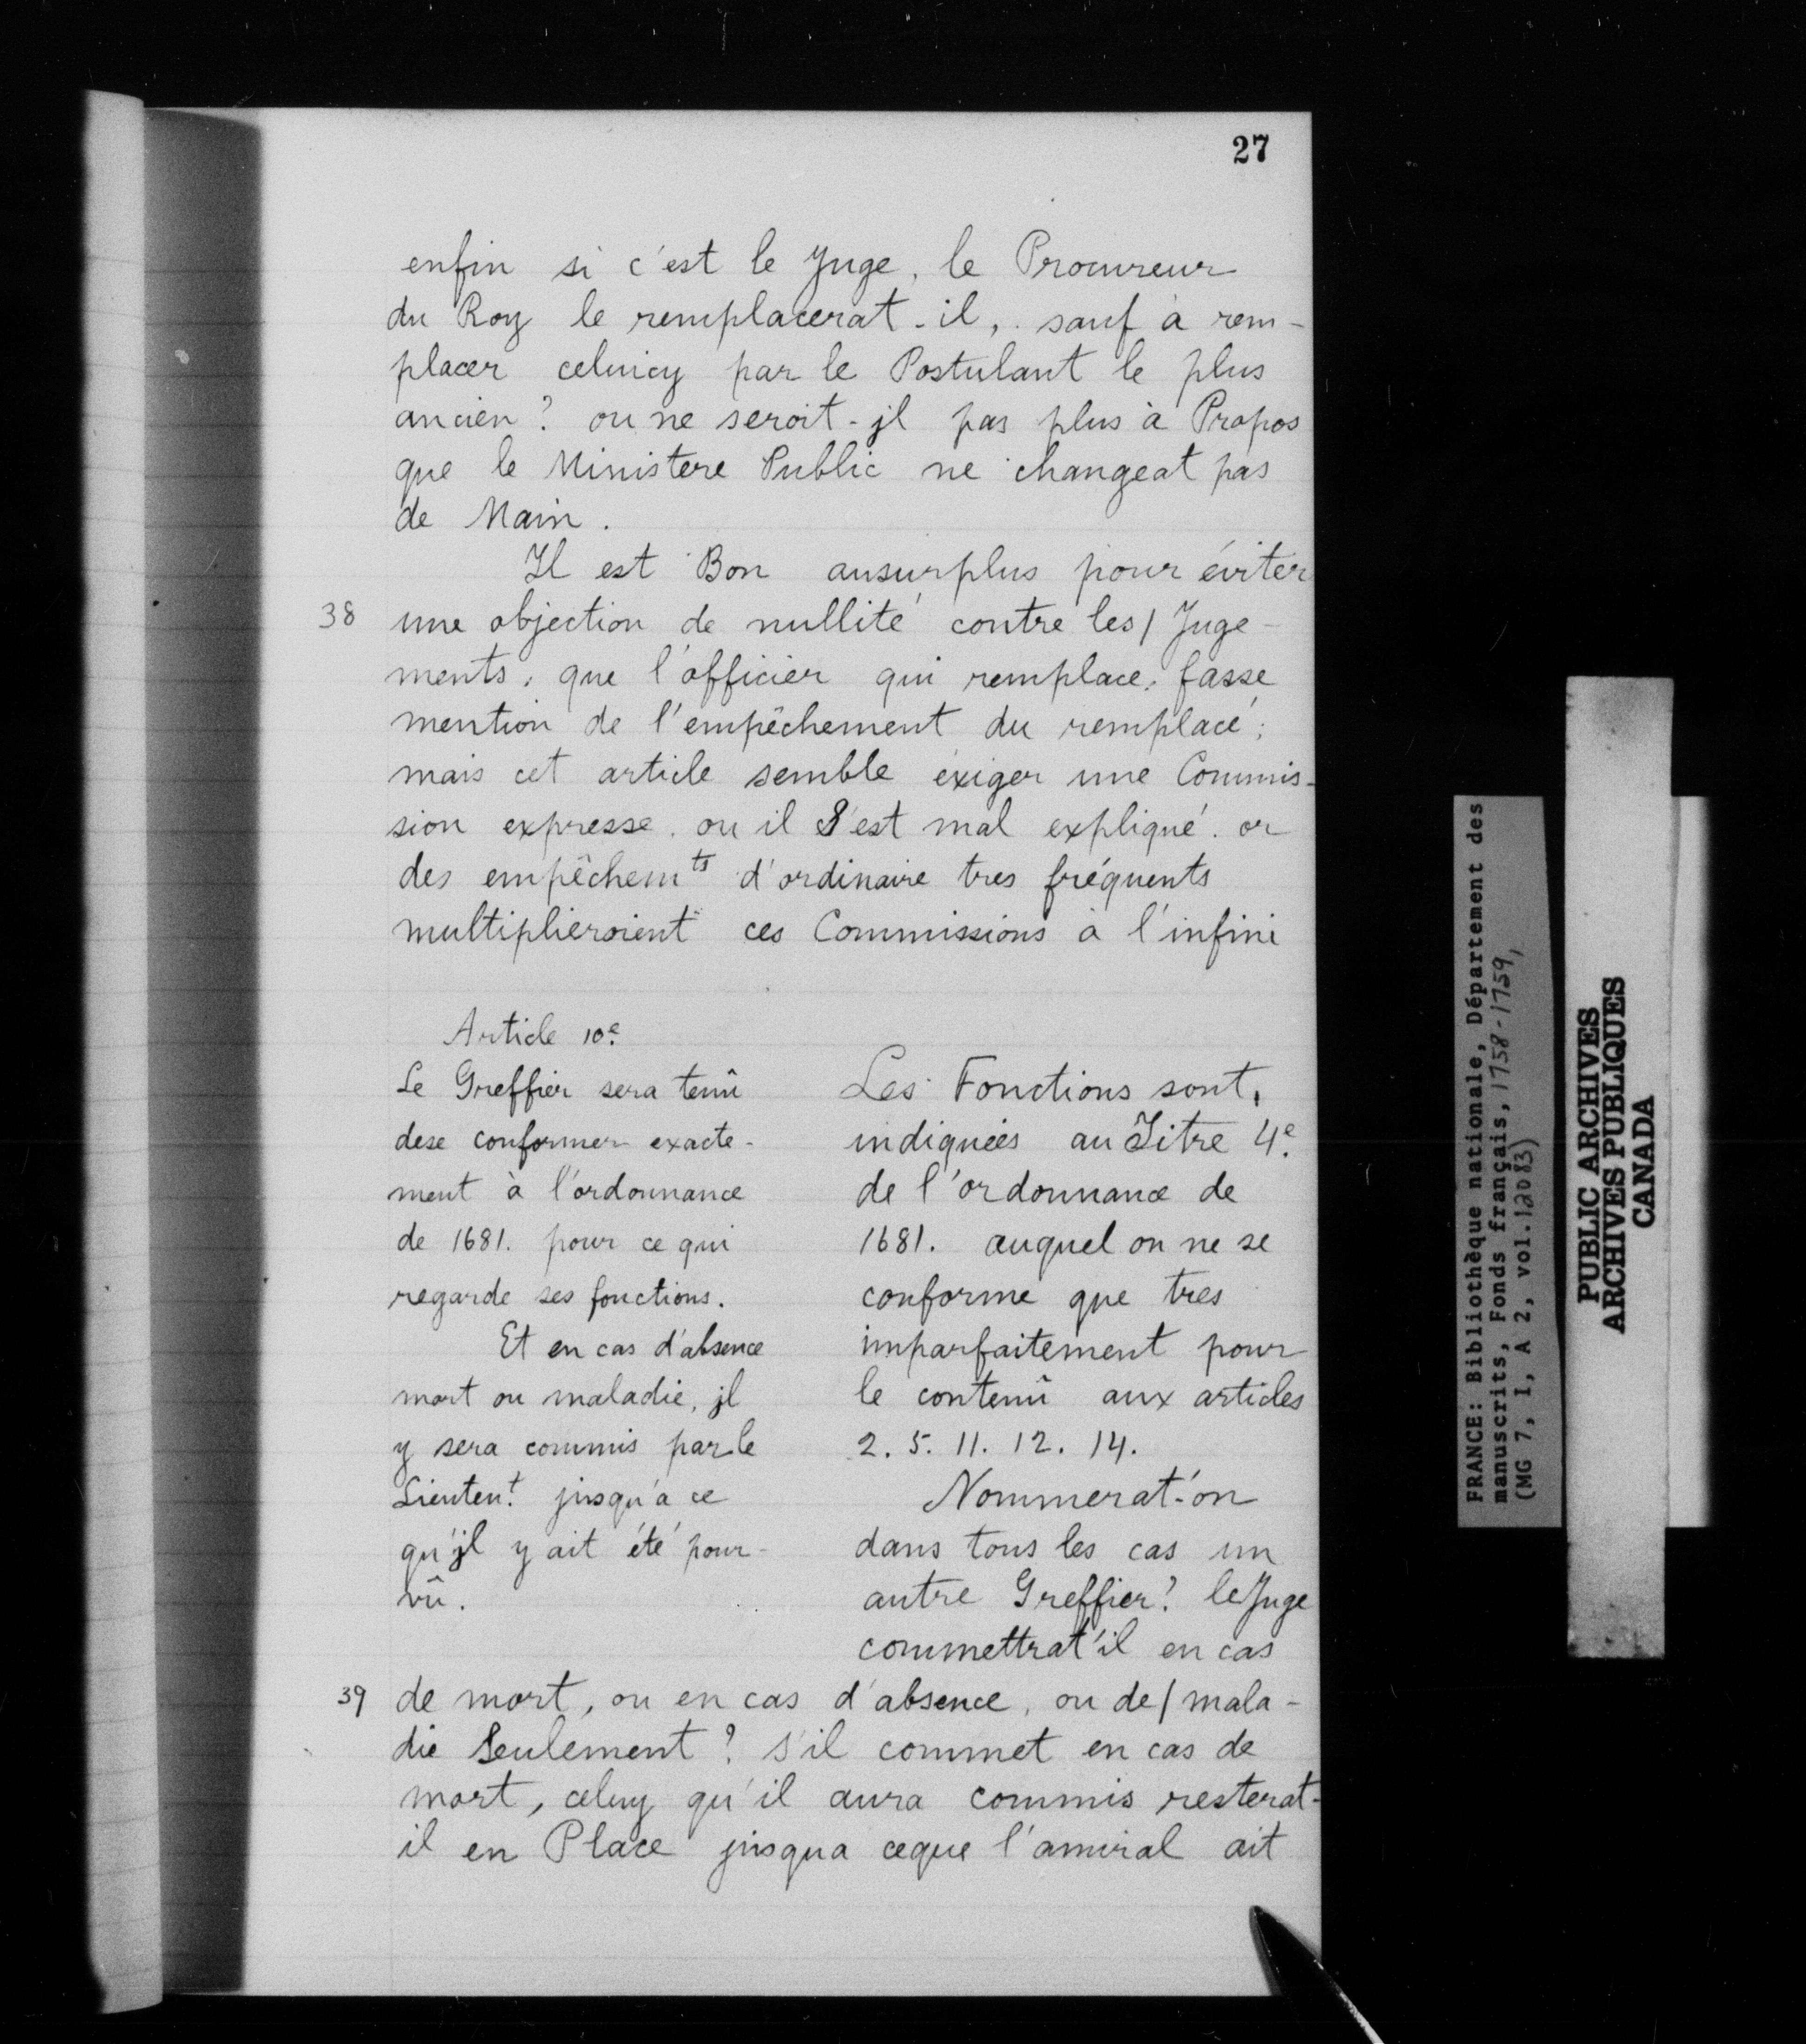 27
enfin si c'est le Juge, le Procureur
du Roy le remplacerat-il, sauf à rem-
placer celuicy par le Postulant le plus
ancien? ou ne seroit-jl pas plus à Propos
que le Ministere Public ne changeat pas
de Main.
Il est Bon ausurplus pour éviter
38 une objection de nullité contre les/ Juge-
ments, que l'officier qui remplace, fasse
mention de l'empêchement du remplacé;
mais cet article semble éxiger une Commis-
sion expresse. ou il S'est mal expliqué. or
des empêchemts d'ordinaire tres fréquents
multiplieroient ces Commissions à l'infini
Article 10e
Le Greffier sera tenû
dese conformer exacte-
ment à l'ordonnance
de 1681. pour ce qui
regarde ses fonctions.
Et en cas d'absence
mort ou maladie, jl
y sera commis par le
Lieutent jusqu'à ce
qu'jl y ait été pour-
vû.
Les Fonctions sont,
indiquées au Titre 4e
de l'ordonnance de
1681. auquel on ne se
conforme que tres
imparfaitement pour
le contenû aux articles
2. 5. 11. 12. 14.
Nommerat-'on
dans tous les cas un
autre Greffier? le Juge
commettrat'il en cas
39 de mort, ou en cas d'absence, ou de/ mala-
die Seulement? s'il commet en cas de
mort, celuy qu'il aura commis resterat-
il en Place jusqua ceque l'amiral ait
FRANCE: Bibliothèque nationale, Département des
manuscrits, Fonds français, 1758-1759,
(MG 7, I, A 2, vol. 12083)
PUBLIC ARCHIVES
ARCHIVES PUBLIQUES
CANADA